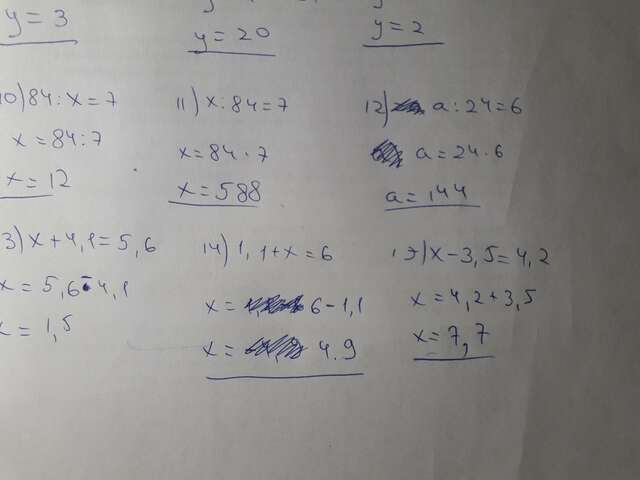 y = 3
y = 20
y = 2
10) 84 : x = 7
x = 84 : 7
x = 12
11) x : 84 = 7
x = 84 · 7
x = 588
12) a : 24 = 6
a = 24 · 6
a = 144
3) x + 4,1 = 5,6
x = 5,6 - 4,1
x = 1,5
14) 1,1 + x = 6
x = 6 - 1,1
x = 4.9
) x - 3,5 = 4,2
x = 4,2 + 3,5
x = 7,7